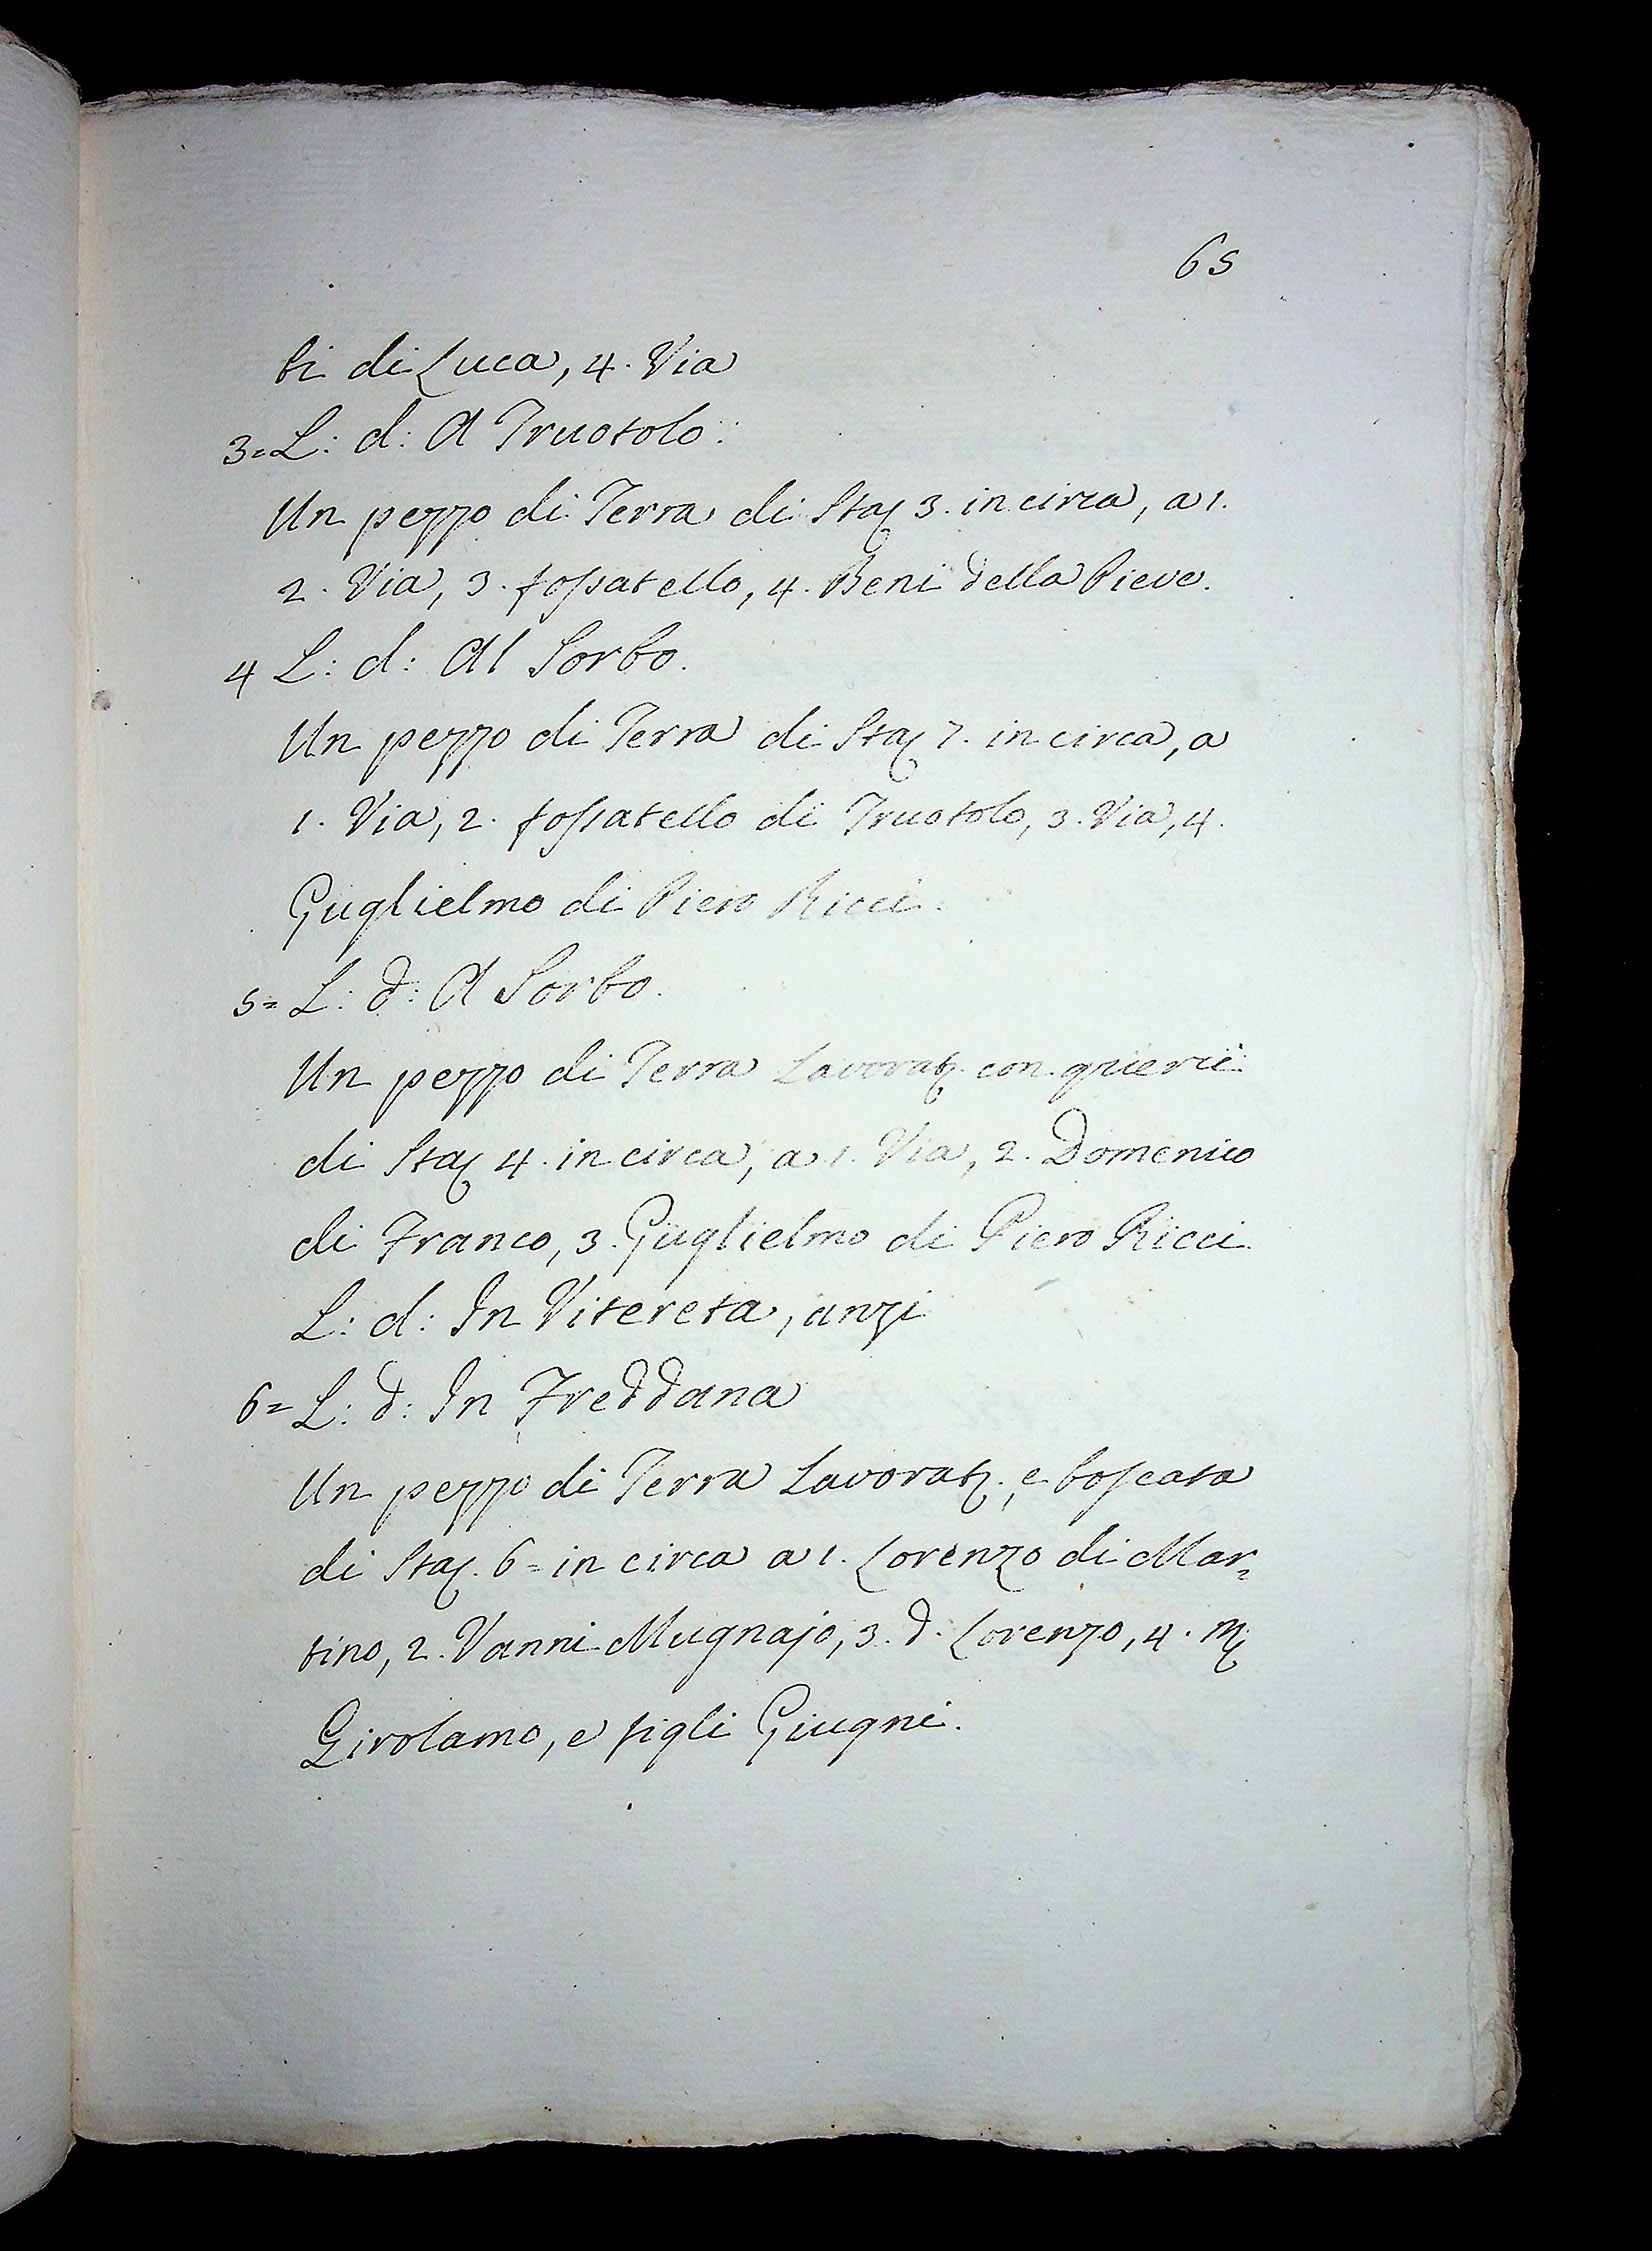 65
ti di Luca, 4. Via
3= L: d: A Truotolo:
Un pezzo di Terra di Staj 3. in circa, a 1.
2. Via, 3. fossatello, 4. Beni della Pieve.
4 L: d: Al Sorbo.
Un pezzo di Terra di Staj 7. in circa, a
1. Via, 2. fossatello di Truotolo, 3. Via, 4.
Guglielmo di Piero Ricci.
5= L: d: A Sorbo.
Un pezzo di Terra Lavorat. con
di Staj 4. in circa, a 1. Via, 2. Domenico
di Franco, 3. Guglielmo di Piero Ricci.
L: d: In Vitereta, anzi
6= L: d: In Freddana
Un pezzo di Terra Lavorat., e boscata
di Staj. 6= in circa a 1. Lorenzo di Mar=
tino, 2. Vanni Mugnajo, 3. d. Lorenzo, 4. M.
Girolamo, e figli Giugni.